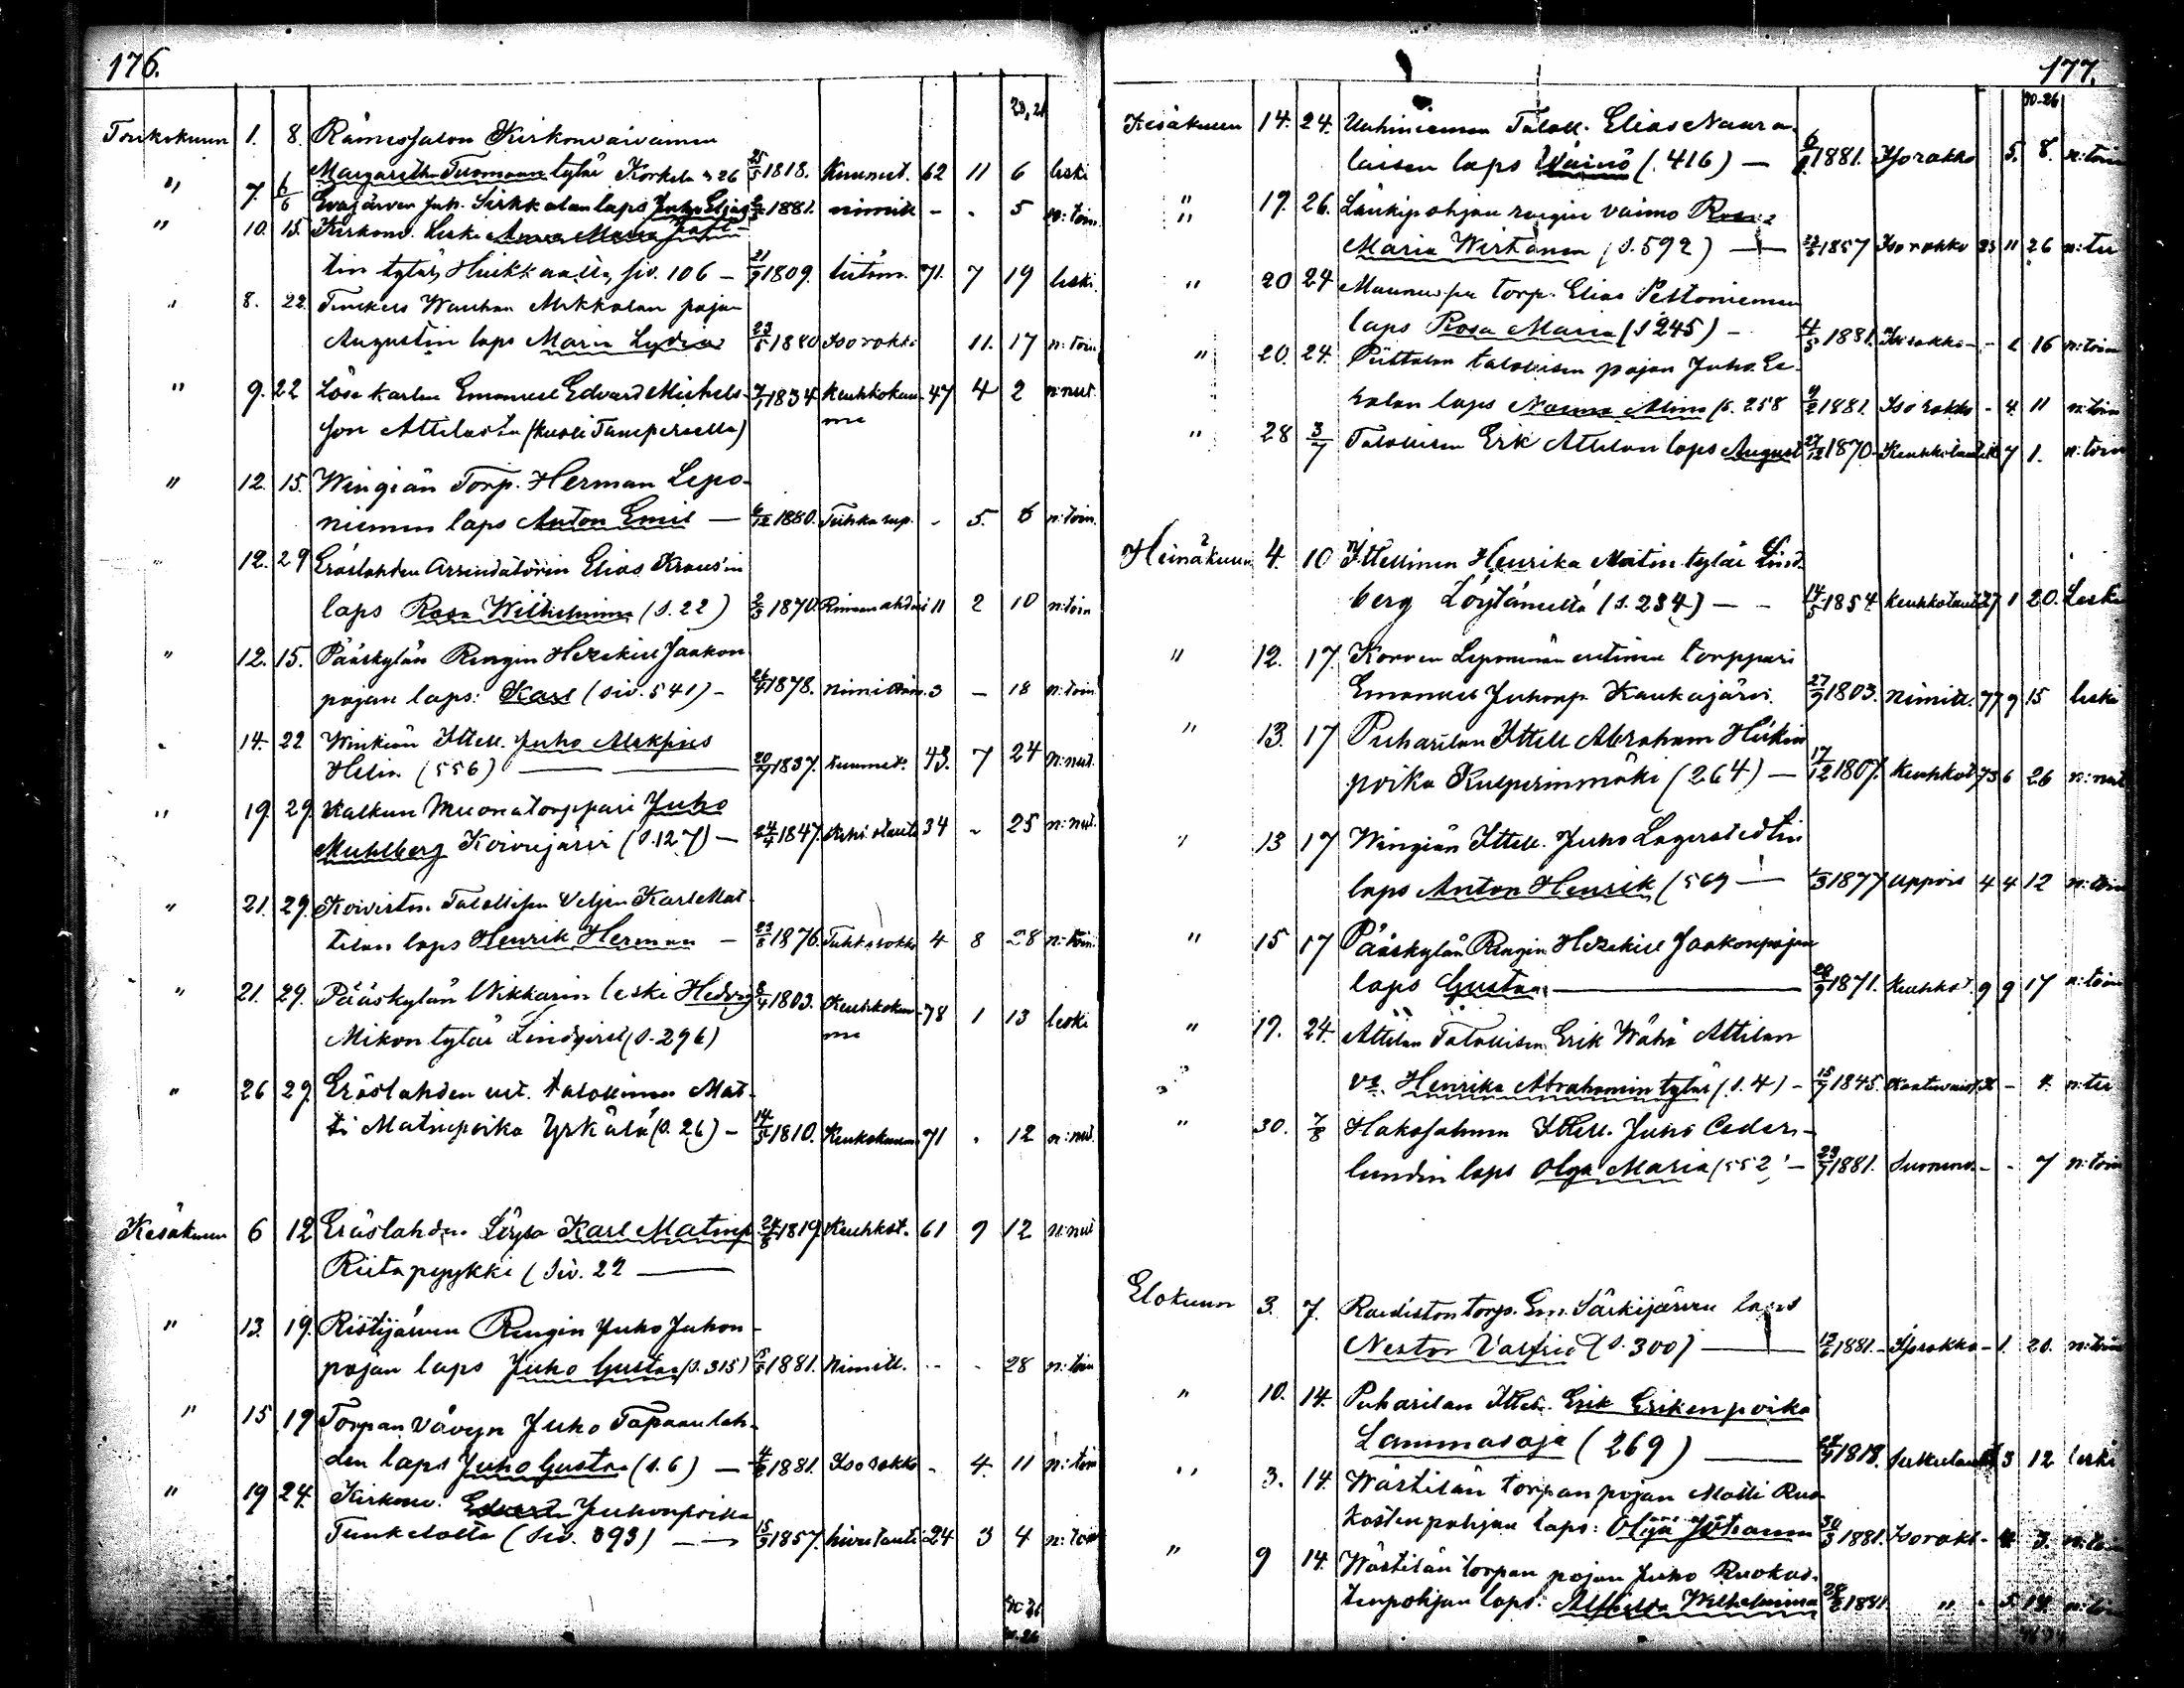 176.
Toukokuun 1. 8. Rämessalon Kirkonvaivainen
Margaretha Tuomaan tytär Korkela s 26 25/5 1818. Kuumet. 62 11 6 leski
" 7. 6/6 Evajärven Juh. Sirkkalan laps Juho Elias 1881. nimitt - - 5 n:toin
" 10. 15. Kirkonv. Leski Anna Maria
tin tytär, Huikkaalla, siv. 106 - 21/9 1809. 71. 7 19 leski
" 8. 22. Mikkolan pojan
Augustin laps Maria Lydia 23/5 1880 Isorokko 11. 17 n:toin
" 9. 22 Emanuel Edvard Michels- 7/1 1834 Keuhkokuu- 47 4 2 n:nut.
son Attilasta (kuoli Tampereella) me
" 12. 15. Wingiän Torp. Herman Lepo-
niemen laps Anton Emil - 6/12 1880. Tuhkarup. - 5. 6 n:toin.
" 12. 29 Eräslahden Arrendatorin Elias Kraus'in
laps Rosa Wilhelmina (s. 22) 2/3 1870. 11 2 10 n:toin
" 12. 15. Pääskylän Rengin Hezekiel Jaakon
pojan laps: Karl (siv. 541) - 1878. nimittöin. 3 - 18 n:toin
" 14. 22 Winkiän Ittell. Juho
Helin (556) 20/9 1837. kuumet. 43. 7 24 n:nut.
" 19. 29. Kalkun Muonatorppari Juho
Muhlberg Koivujärvi (s. 127) - 24/4 1847. 34 - 25 n:nut.
" 21. 29. Koiviston Talollisen Veljen Karl Mat-
tilan laps Henrik Herman - 23/8 1876. Tuhkarokko 4 8 28 n:toin.
" 21. 29. Pääskylän Nikkarin leski Hedvig 8/4 1803. Keuhkokuu- 78 1 13 leski
Mikon tytär Lindqvist (s. 296) me
" 26 29. Eräslahden ent. talokinen Mat-
ti Matinpoika Yrkälä (s. 26) - 14/5 1810. Keukokuume 71 - 12 n:nut.
Kesäkuun 6 12 Eräslahden Karl Matinp. 24/8 1819. Keuhkot. 61 9 12 n:nut
Riitapyykki (Siv. 22
" 13. 19. Ristijärven Rengin Juho Juhon-
pojan laps Juho Gustav (s. 315) 1881. Nimitt. - - 28 n:toin
" 15 19 Torpan Vävyn Juho Tapaanlah-
den laps Juho Gustav (s. 6) - 1881. Isorokko - 4. 11 n:toin
" 19 24. Kirkonv. Edvard Juhonpoika
(siv. 393) 15/3 1857. hivutauti 24 3 4 n:toin
177.
Kesäkuun 14. 24. Uuhiniemen Taloll. Elias Naura-
laisen laps Wäinö (416) - 1881. Isorokko 5. 8. n:toin
" 19. 26. Länkipohjan rengin vaimo Rosa
" Maria Wirtanen (s. 592) 1857 Isorokko 23 11 26 n:tu
" 20 24 torp. Elias Peltoniemen
laps Rosa Maria (s 245) - 1881. Isorokko - 2 16 n:toin
" 20. 24. Pittalan talollisen pojan Juho Ee-
rolan laps Naima Alina (s. 258 9/2 1881. Isorokko - 4. 11 n:toin
" 28 3/7 Talollisen Erik Attilan laps August 27/12 1870. Keuhkotauti 7 1. n:toin
Heinäkuun 4. 10 Ittellinen Henrika Matin tytär Lind-
berg Löytäneltä (s. 234) - - 14/5 1854 Keuhkotauti 27 1 20. Leski
" 12. 17. Korven Leponiemän entinen torppari
Emanuel Juhonp. Kaukajärvi 27/9 1803. Nimitt. 77 9 15 leski
" 13. 17 Puharilan Ittell Abraham Heikin
poika Kulperinmäki (264) - 17/12 1807. Keuhkot. 73 6 26 n:nut
" 13 17 Wingiän Ittell. Juho Lagerstedtin
laps Anton Henrik (569 - 1/3 1877 uppois 4 4 12 n:toin
" 15 17 Pääskylän Rengin Hezekiel Jaakonpojan
laps Gustav 20/9 1871. Keuhkot. 9 9 17 n:toin
" 19. 24. Attilan Talollisen Erik Wähä Attilan
" vo. Henrika Abrahamin tytär (s. 4) - 15/7 1845. - 4. n:tu
" 30. 7/8 Haksahmen Ittell. Juho Ceder-
lundin laps Olga Maria (552) - 23/7 1881. - - 7 n:toin
Elokuun 3. 7. torp. Em. Särkijärven laps
Nestor Valfrid (s. 300) 13/6 1881. Isorokko - 1. 20. n:toin
" 10. 14. Puharilan Ittell. Erik Erikenpoika
Lammasoja (269) 1818. 3 12 leski
" 3. 14. Wästilän torpan pojan Matti Ruo-
kostenpohjan laps: Olga Johanna 30/3 1881. Isorokk - 4. 3. n:toin
" 9 14. Wästilän torpan pojan Juho Ruokos-
tenpohjan laps: Wilhelmina 1881 " - 5. 14. n:toin